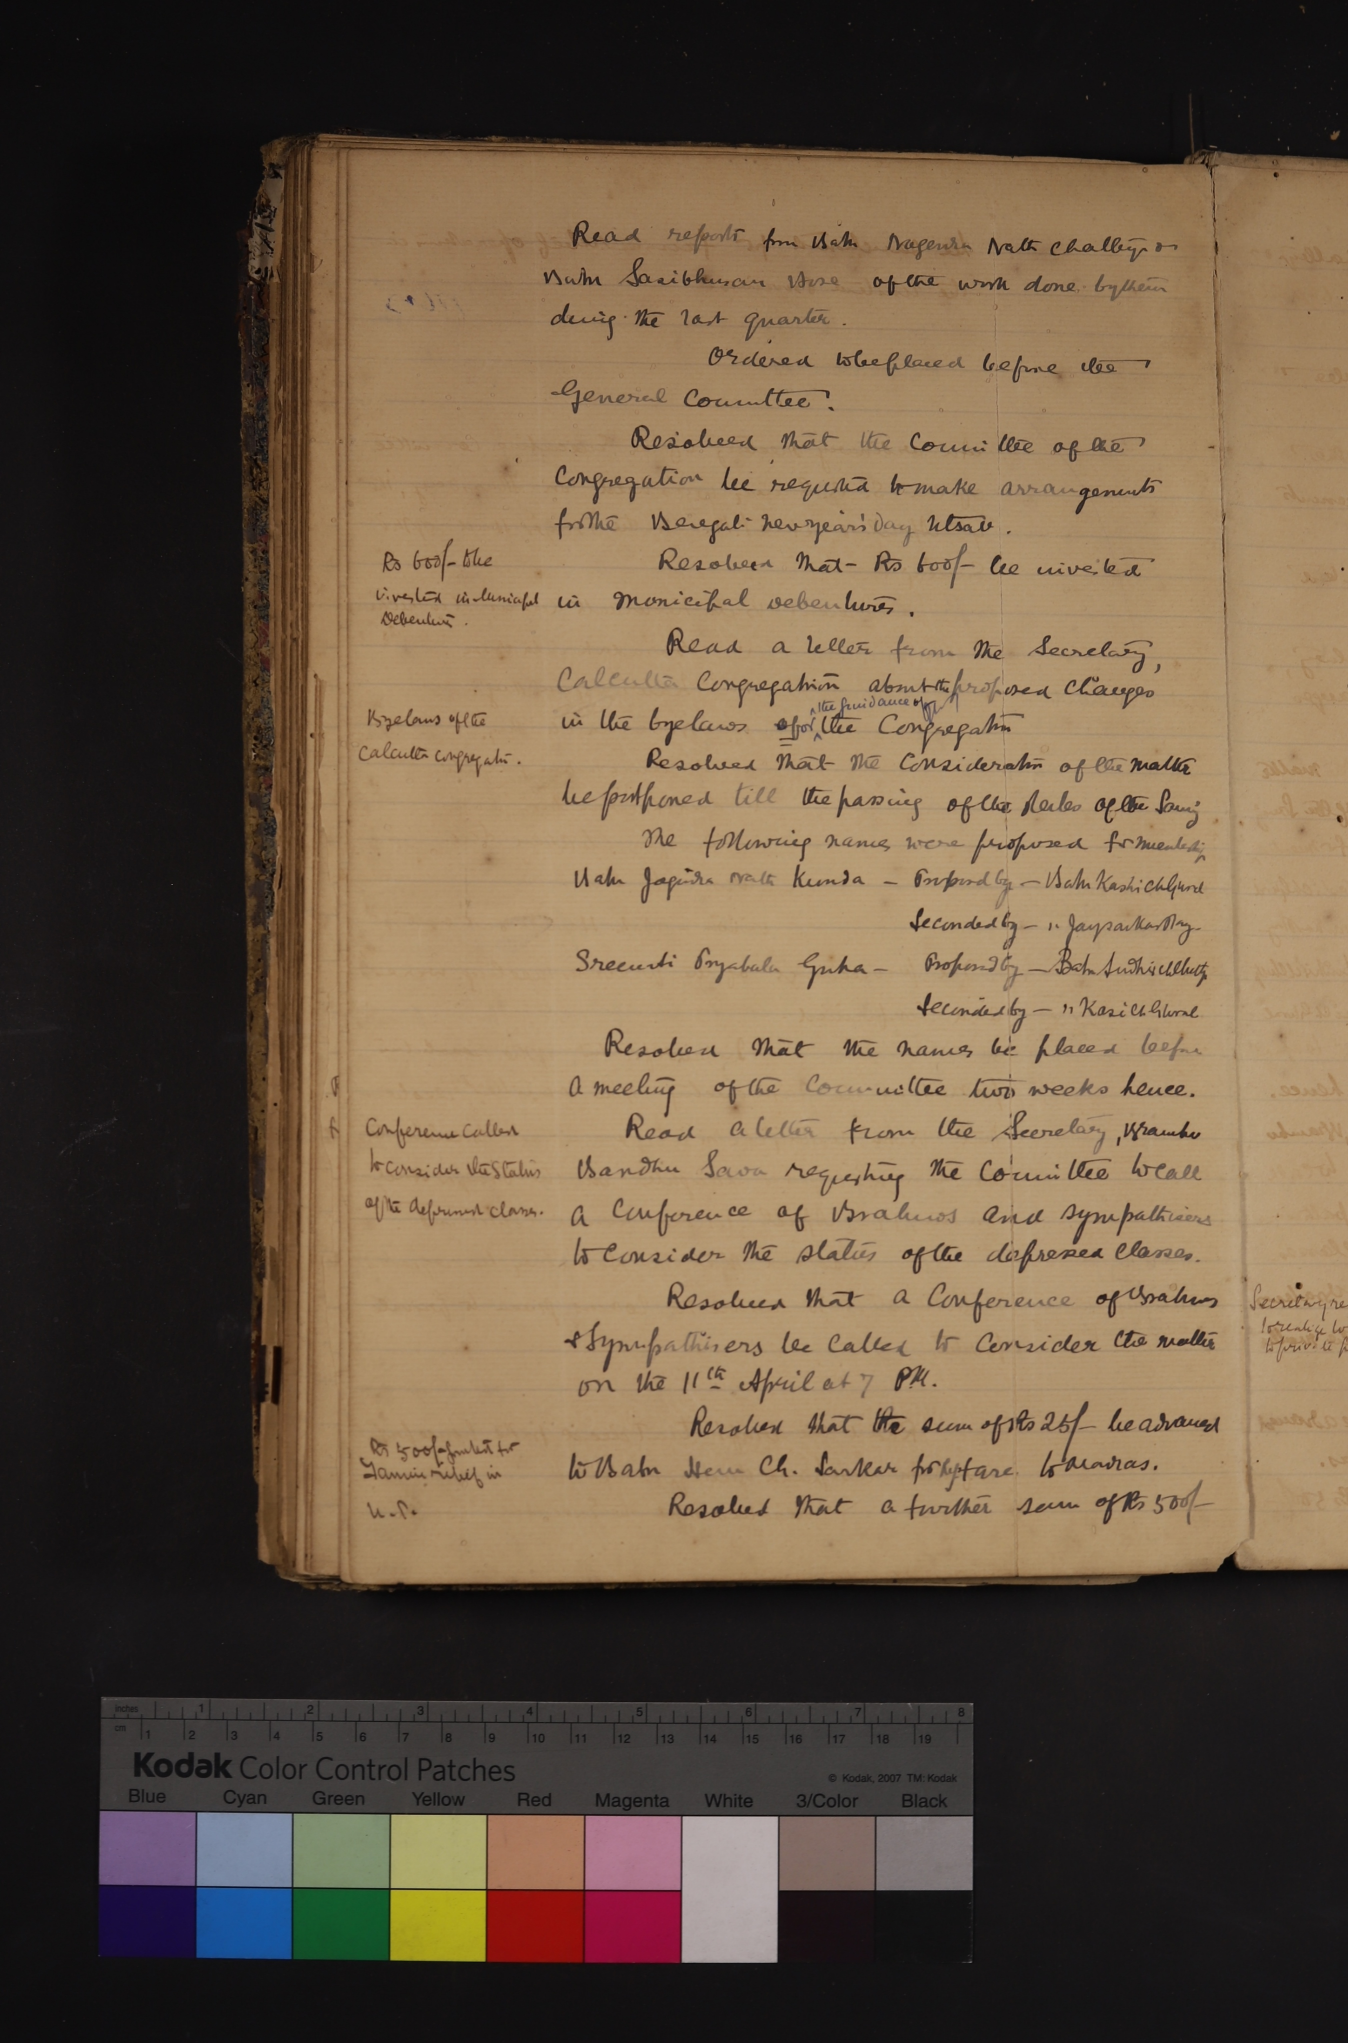 Read reports from Babu Nagendra Nath Chatterji &
Babu Sasibhusan Bose of the work done by them
during the last quarter.
Ordered to be placed before the
General Committee.
Resolved that the Committee of the
Congregation be requested to make arrangements
for the Bengali new year's day Utsab.
Rs 600/- to be
invested in Municipal
Debentures.
Resolved that Rs 600/- be invested
in Municipal debentures.
Read a letter from the Secretary,
Calcutta Congregation about the proposed changes
Byelaws of the
Calcutta Congregatn.
in the byelaws for the guidance of the Congregation
Resolved that the consideration of the matter
be postponed till the passing of the Rules of the Samaj
The following names were proposed for membership
Babu Jogindra Nath Kunda – Proposed by – Babu Kashi Ch Ghosal
Seconded by – " Joysankar Roy
Sreemati Pryabala Guha – Proposed by – Babu Sudhir Ch Chatterji
Seconded by – " Kasi Ch Ghosal
Resolved that the names be placed before
a meeting of the Committee two weeks hence.
Conference called
to consider the status
of the depressed classes.
Read a letter from the Secretary, Brambo
Bandhu Sava requesting the Committee to call
a Conference of Brahmos and sympathisers
to consider the status of the depressed classes.
Resolved that a Conference of Brahmos
& Sympathisers be called to consider the matter
on the 11th April at 7 P.M.
Resolved that the sum of Rs 25/- be advanced
to Babu Hem Ch. Sarkar for his fare to Madras.
Rs 500/- granted for
Famine relief in
U.P.
Resolved that a further sum of Rs 500/-
Secretary re
to realize
to private
inches 1 2 3 4 5 6 7 8
cm 1 2 3 4 5 6 7 8 9 10 11 12 13 14 15 16 17 18 19
Kodak Color Control Patches
© Kodak, 2007 TM: Kodak
Blue Cyan Green Yellow Red Magenta White 3/Color Black